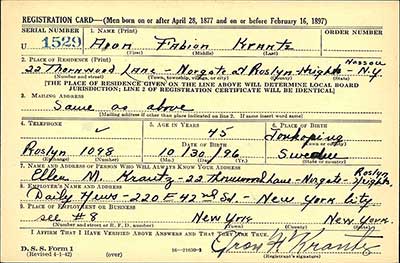 REGISTRATION CARD—(Men born on or after April 28, 1877 and on or before February 16, 1897)
SERIAL NUMBER 1. NAME (Print) ORDER NUMBER
U 1529 Aron Fabian Krantz
(First) (Middle) (Last)
2. PLACE OF RESIDENCE (Print) Nassau
22 Thornwood Lane Norgate at Roslyn Heights N.Y.
(Number and street) (Town, township, village, or city) (County) (State)
[THE PLACE OF RESIDENCE GIVEN ON THE LINE ABOVE WILL DETERMINE LOCAL BOARD
JURISDICTION; LINE 2 OF REGISTRATION CERTIFICATE WILL BE IDENTICAL]
3. MAILING ADDRESS
Same as above
[Mailing address if other than place indicated on line 2. If same insert word same]
4. TELEPHONE 5. AGE IN YEARS 6. PLACE OF BIRTH
✓ 45 Jonkoping
DATE OF BIRTH (Town or county)
Roslyn 1098 10 / 30 / 96 Sweden
(Exchange) (Number) (Mo.) (Day) (Yr.) (State or country)
7. NAME AND ADDRESS OF PERSON WHO WILL ALWAYS KNOW YOUR ADDRESS Roslyn
Ellen M. Krantz - 22 Thornwood Lane - Norgate - Heights
8. EMPLOYER'S NAME AND ADDRESS
Daily News - 220 E 42nd St. - New York City
9. PLACE OF EMPLOYMENT OR BUSINESS
see #8 New York New York.
(Number and street or R. F. D. number) (Town) (County) (State)
I AFFIRM THAT I HAVE VERIFIED ABOVE ANSWERS AND THAT THEY ARE TRUE.
D. S. S. Form 1 Aron F. Krantz
(Revised 4-1-42) (over) 16—21630-2 (Registrant's signature)